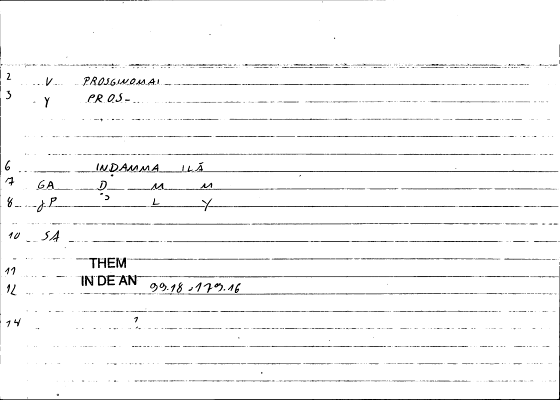 2 V PROSGINOMAI
3 Y PROS-
6 INDAMMA ILĀ
7 GA D M M
8 gP L Y
10 SA
THEM
11
IN DE AN
12 99.18, 179.16
14 ?